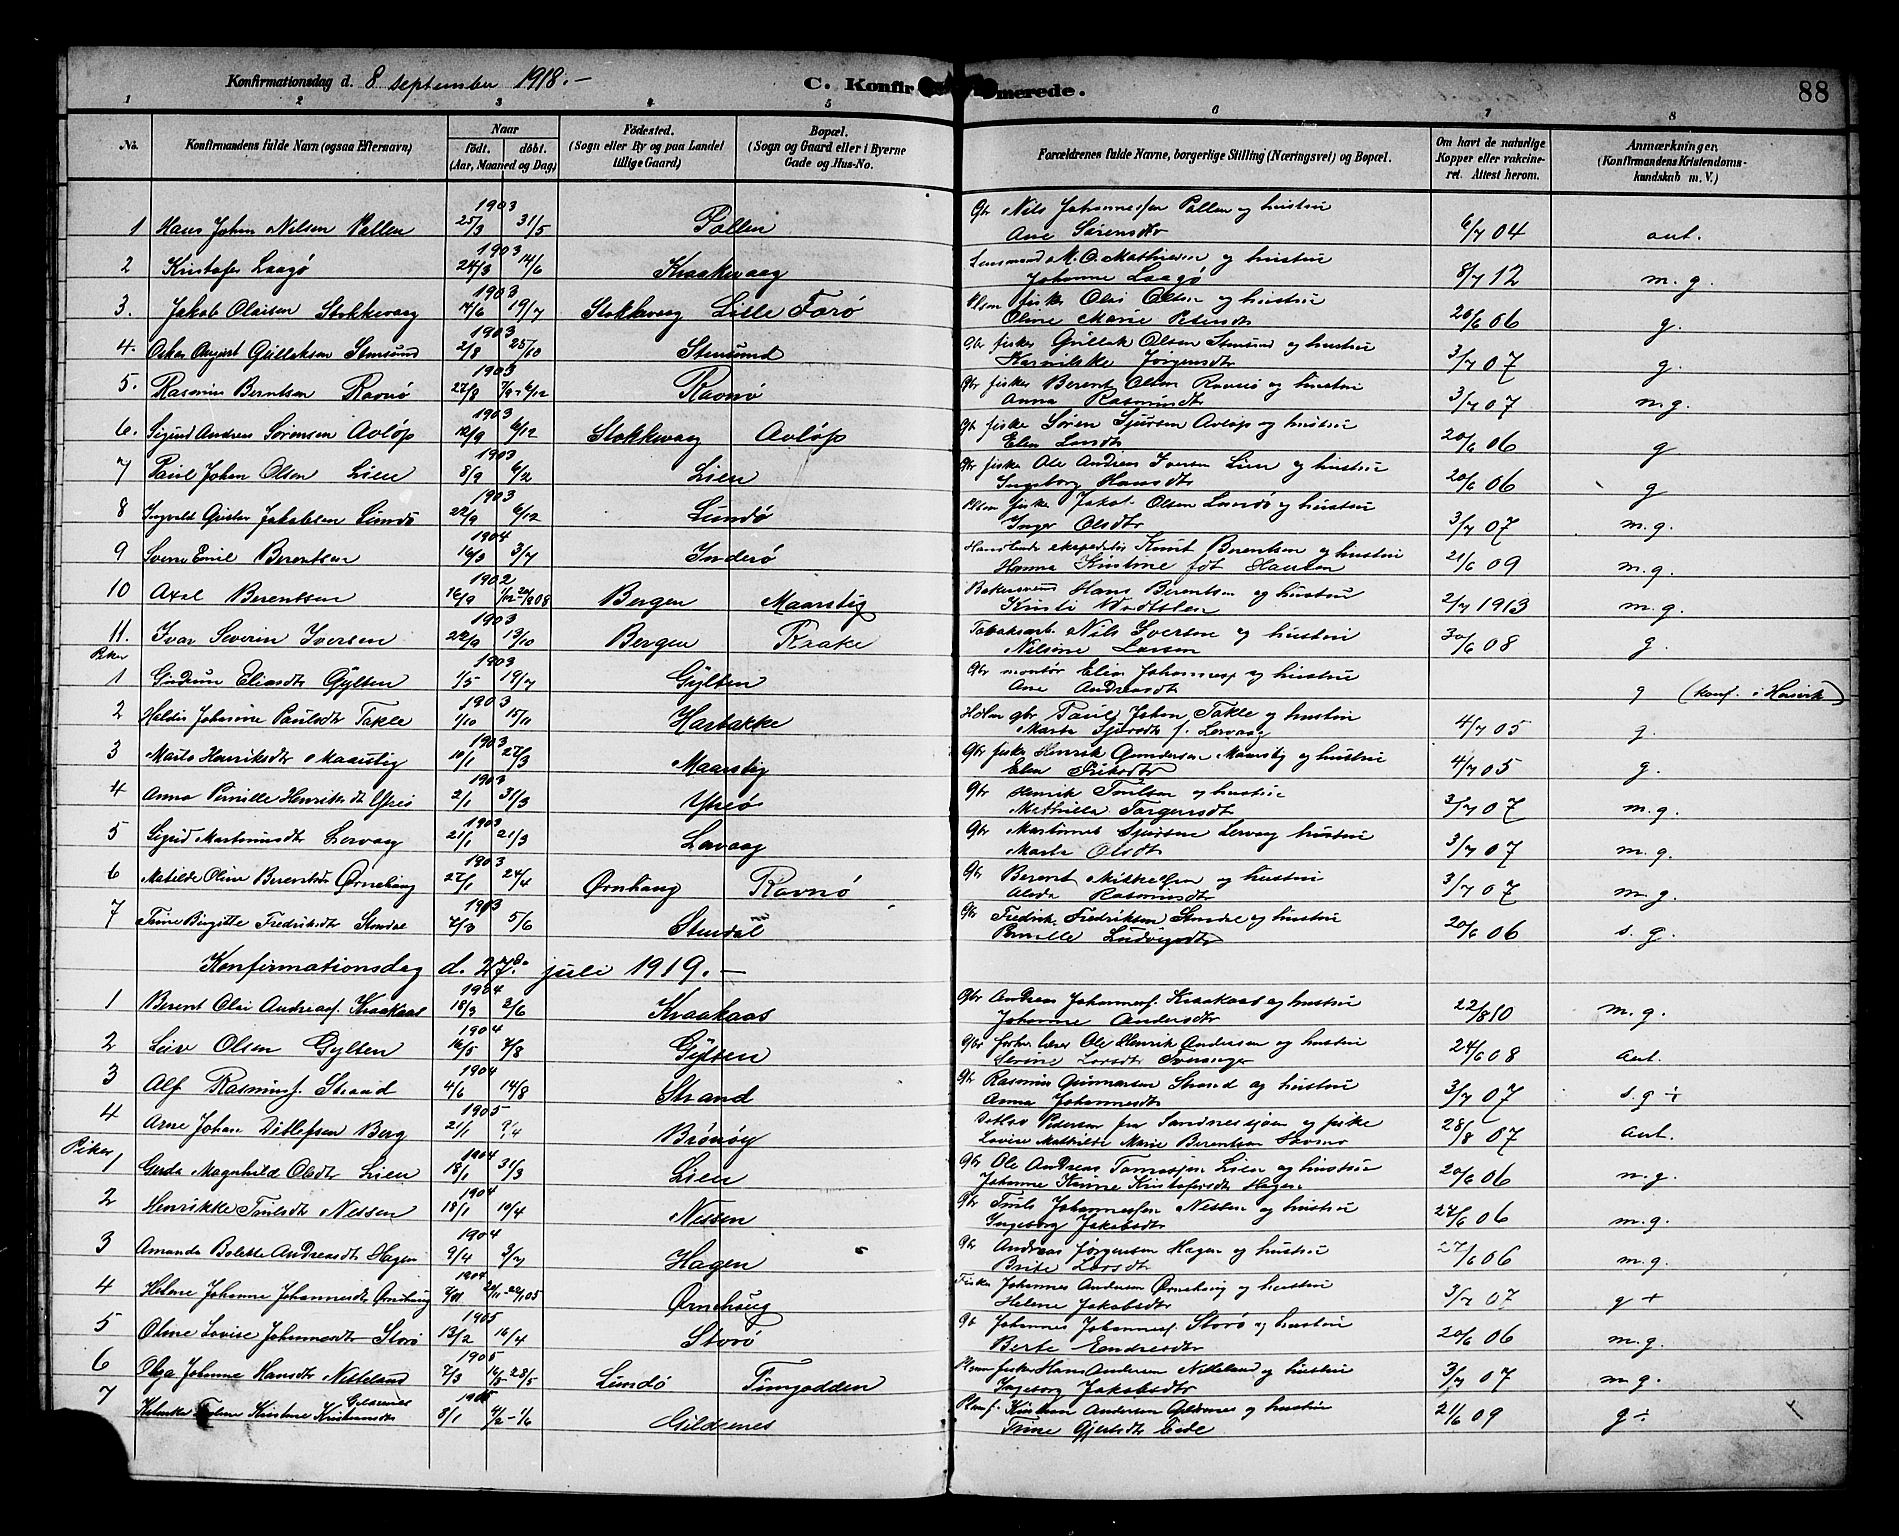 Konfirmationsdag d. 8 september 1918.-
C. Konfirmerede.
88
1 2 3 4 5 6 7 8
No. Konfirmandens fulde Navn (ogsaa Efternavn) Naar födt. döbt. (Aar, Maaned og Dag) Födested. (Sogn eller By og paa Landet tillige Gaard) Bopæl. (Sogn og Gaard eller i Byerne Gade og Hus-No. Forældrenes fulde Navne, borgerlige Stilling (Næringsvei) og Bopæl. Om havt de naturlige Kopper eller vakcineret. Attest herom. Anmærkninger. (Konfirmandens Kristendomskundskab m. V.)
1 Hans Johan Nilsen Pollen 1903 25/3 31/5 Pollen Gbr Nils Johannessen Pollen og hustru Ane Sörensdtr 6/7 04 aut.
2 Kristofer Laagö 1903 24/3 14/6 Kraakevaag Lensmand M. O. Mathiesen og hustru Johanne Laagö 8/7 12 m. g.
3. Jakob Olaisen Stokkevaag 1903 14/6 19/7 Stokkevaag Lille Farö Plsm fisker Olai Olsen og hustru Oline Marie Petersdtr 20/6 06 g.
4. Oskar August Gullaksen Stensund 1903 2/8 25/10 Stensund Gbr fisker Gullak Olsen Stensund og hustru Jörgensdtr 3/7 07 g.
5. Rasmus Berntsen Ravnö 1903 27/8 6/12 Ravnö Gbr fisker Berent Olsen Ravnö og hustru Anna Rasmusdtr 3/7 07 m.g.
6. Sigurd Andreas Sörensen Avlöp 1903 12/9 6/12 Stokkevaag Avlöp Gbr fisker Sören Sjursen Avlöp og hustru Elen Larsdtr 20/6 06 g
7 Paul Johan Olsen Lien 1903 8/9 6/12 Lien Gbr fisker Ole Andreas Iversen Lien og hustru Ingeborg Hansdtr 20/6 06 g
8 Ingvald Gustav Jakobsen Lundö 1903 22/9 6/12 Lundö Plsm fisker Jakob Olsen Lundö og hustru Inger Olsdtr 3/7 07 m.g.
9 Sverre Emil Berentsen 1904 16/3 3/7 Inderö Handelsekspeditör Knut Berentsen og hustru Hanna Kristine föt Hansen 21/6 09 m.g.
10 Axel Berentsen 1902 16/9 Bergen Maarstig Bakersvend Hans Berentsen og hustru Kristi 2/7 1913 m.g.
11. Ivar Severin Iversen 1903 22/9 13/10 Bergen Kraake Tobaksarb. Nils Iversen og hustru Nilsine Larsen 30/6 08 g.
Piker
1 Gudrun Eliasdtr Gylten 1903 1/5 19/7 Gylten Gbr montör Elias Johannesen og hustru Ane Andreasdtr g (konf. i Hervik)
2 Haldis Johanne Paulsdtr Takle 1903 1/10 15/11 Harbakke gbr Paul Johan Takle og hustru Marta Sjursdtr f. Lervaag 4/7 05 g.
3 Marta Henriksdtr Maarstig 1903 10/1 27/3 Maarstig Gbr fisker Henrik Gundersen Maarstig og hustru Elen Eriksdtr 4/7 05 g.
4 Anna Pernille Henriksdtr Ytreö 1903 2/1 31/3 Ytreö Gbr Henrik Trulsen og hustru Mathilda Torgersdtr 3/7 07 m.g.
5 Sigrid Martinusdtr Lervaag 1903 21/1 21/3 Lervaag Gbr Martines Sjursen Lervaag hustru Marta Olsdtr 3/7 07 m.g.
6 Matilde Oline Berentsdtr Ørnehaug 1903 27/1 24/4 Ørnhaug Ravnö Gbr Berent Mikkelsen og hustru Alida Rasmusdtr 3/7 07 m.g.
7 Trine Birgitte Fredriksdtr Stendal 1903 4/3 5/6 Stendal Gbr Fredrik Fredriksen Stendal og hustru Pernille Ludvigsdtr 20/6 06 s. g.
Konfirmationsdag d. 27de juli 1919.-
1 Berent Olai Andreasf. Kraakaas 1904 18/3 2/6 Kraakaas Gbr Andreas Johannesf. Kraakaas og hustru Johanne Andersdtr 22/8 10 m.g.
2 Leiv Olsen Gylten 1904 16/5 7/8 Gylten Gbr forhv. lærer Ole Henrik Andersen og hustru Serine Larsdtr 24/6 08 Aut.
3 Alf Rasmusf. Strand 1904 4/6 14/8 Strand Gbr Rasmus Gunnarsen Strand og hustru Anna Johannesdtr 3/7 07 s.g ÷
4 Arne Johan Ditlefsen Berg 1905 21/1 9/4 Brönöy Detlav Pedersen fra Sandnessjöen og fiske Lovise Mathilde Marie Berentsen 28/8 07 Aut.
Piker
1 Gerda Magnhild Olsdtr Lien 1904 18/1 31/3 Lien Gbr Ole Andreas Tomasjen Lien og hustru Johanne Karine Kristofersdtr Hagen 20/6 06 m.g.
2 Henrikke Trulsdtr Nessen 1904 18/1 10/4 Nessen Gbr Truls Johannessen Nessen og hustru Ingeborg Jakobsdtr 27/6 06 m.g.
3 Amanda Bolette Andreasdtr Hagen 1904 9/4 3/7 Hagen Gbr Andreas Jörgensen Hagen og hustru Brite Larsdtr 27/6 06 m.g.
4 Helene Johanne Johannesdtr Ørnehaug 1904 Ørnehaug Fisker Johannes Andersen Ørnehaug og hustru Helene Jakobsdtr 3/7 07 g +
5 Oline Lovise Johannesdtr Storö 1905 13/2 16/4 Storö Gbr Johannes Johannesf. Storö og hustru Berte Endresdtr 20/6 06 m.g.
6 Olga Johanne Hansdtr Nitteland 1905 7/3 14/5-28/5 Lundö Tungodden Plsm fisker Hans Andersen Nitteland og hustru Ingeborg Jakobsdtr 3/7 07 m.g.
7 Kristine Kristiansdtr Gildrenes 1905 8/1 Gildrenes Plsm f. Kristian Andersen Gildrenes og hustru Trine Gjertsdtr Eide 21/6 09 g ÷